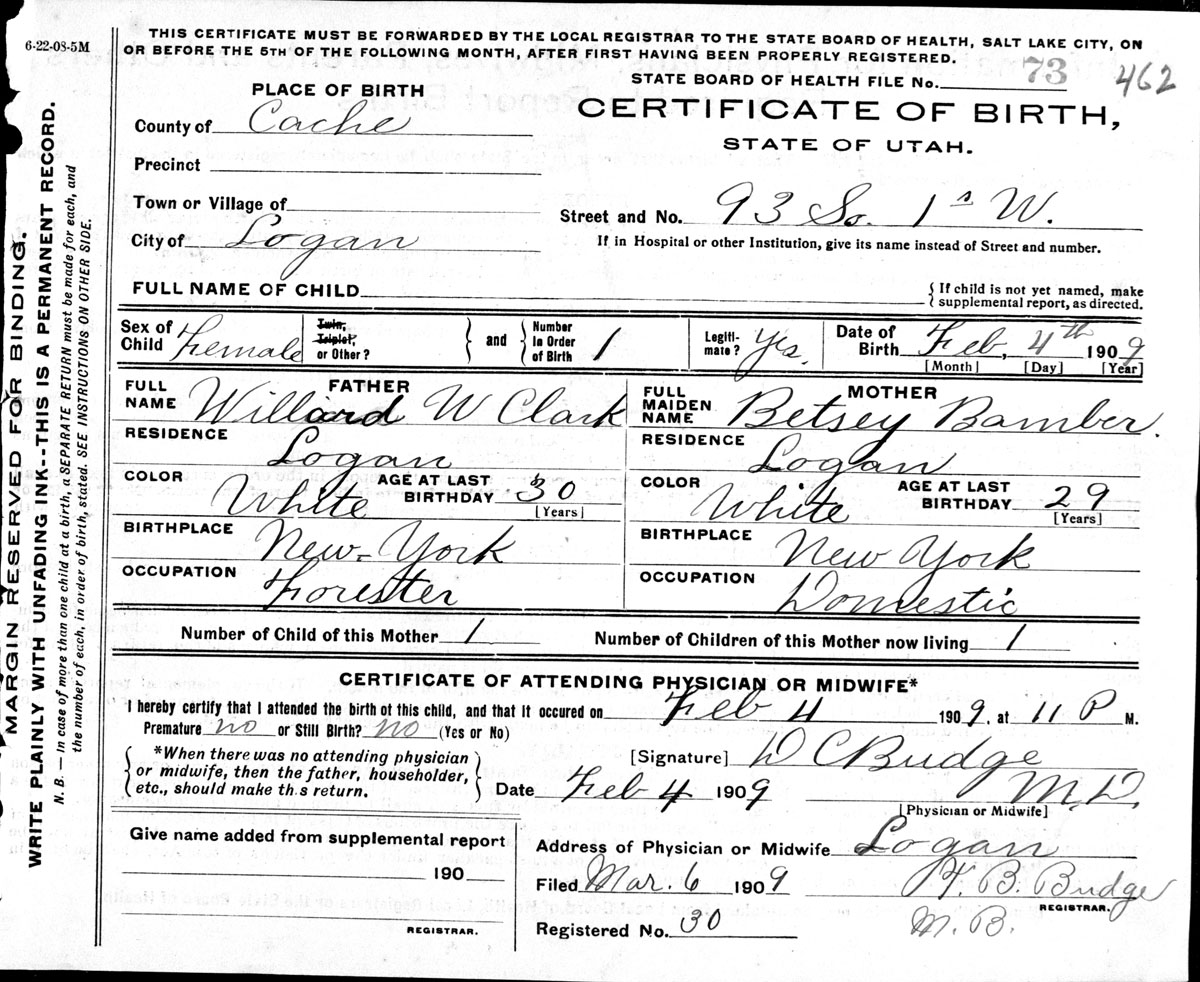 6-22-08-5M
THIS CERTIFICATE MUST BE FORWARDED BY THE LOCAL REGISTRAR TO THE STATE BOARD OF HEALTH, SALT LAKE CITY, ON
OR BEFORE THE 5TH OF THE FOLLOWING MONTH, AFTER FIRST HAVING BEEN PROPERLY REGISTERED.
STATE BOARD OF HEALTH FILE No. 73 462
MARGIN RESERVED FOR BINDING.
WRITE PLAINLY WITH UNFADING INK--THIS IS A PERMANENT RECORD.
N. B. — In case of more than one child at a birth, a SEPARATE RETURN must be made for each, and
the number of each, in order of birth, stated. SEE INSTRUCTIONS ON OTHER SIDE.
PLACE OF BIRTH
CERTIFICATE OF BIRTH,
STATE OF UTAH.
County of Cache
Precinct
Town or Village of
City of Logan
Street and No. 93 So. 1st W.
If in Hospital or other Institution, give its name instead of Street and number.
FULL NAME OF CHILD
{ If child is not yet named, make
supplemental report, as directed.
Sex of Child Female
Twin, Triplet, or Other? } and { Number in Order of Birth 1
Legiti-mate? Yes.
Date of Birth Feb, 4th 1909
[Month] [Day] [Year]
FATHER
FULL NAME Willard W Clark
RESIDENCE Logan
COLOR White AGE AT LAST BIRTHDAY 30
[Years]
BIRTHPLACE New-York
OCCUPATION Forester
MOTHER
FULL MAIDEN NAME Betsey Bamber.
RESIDENCE Logan
COLOR White AGE AT LAST BIRTHDAY 29
[Years]
BIRTHPLACE New York
OCCUPATION Domestic
Number of Child of this Mother 1 Number of Children of this Mother now living 1
CERTIFICATE OF ATTENDING PHYSICIAN OR MIDWIFE*
I hereby certify that I attended the birth of this child, and that it occured on Feb 4 1909, at 11 P M.
Premature no or Still Birth? no (Yes or No)
{ *When there was no attending physician
or midwife, then the father, householder,
etc., should make th s return. }
[Signature] D C Budge
M.D.
Date Feb 4 1909
[Physician or Midwife]
Give name added from supplemental report
190
REGISTRAR.
Address of Physician or Midwife Logan
Filed Mar. 6 1909 T. B. Budge
REGISTRAR.
M. B.
Registered No. 30